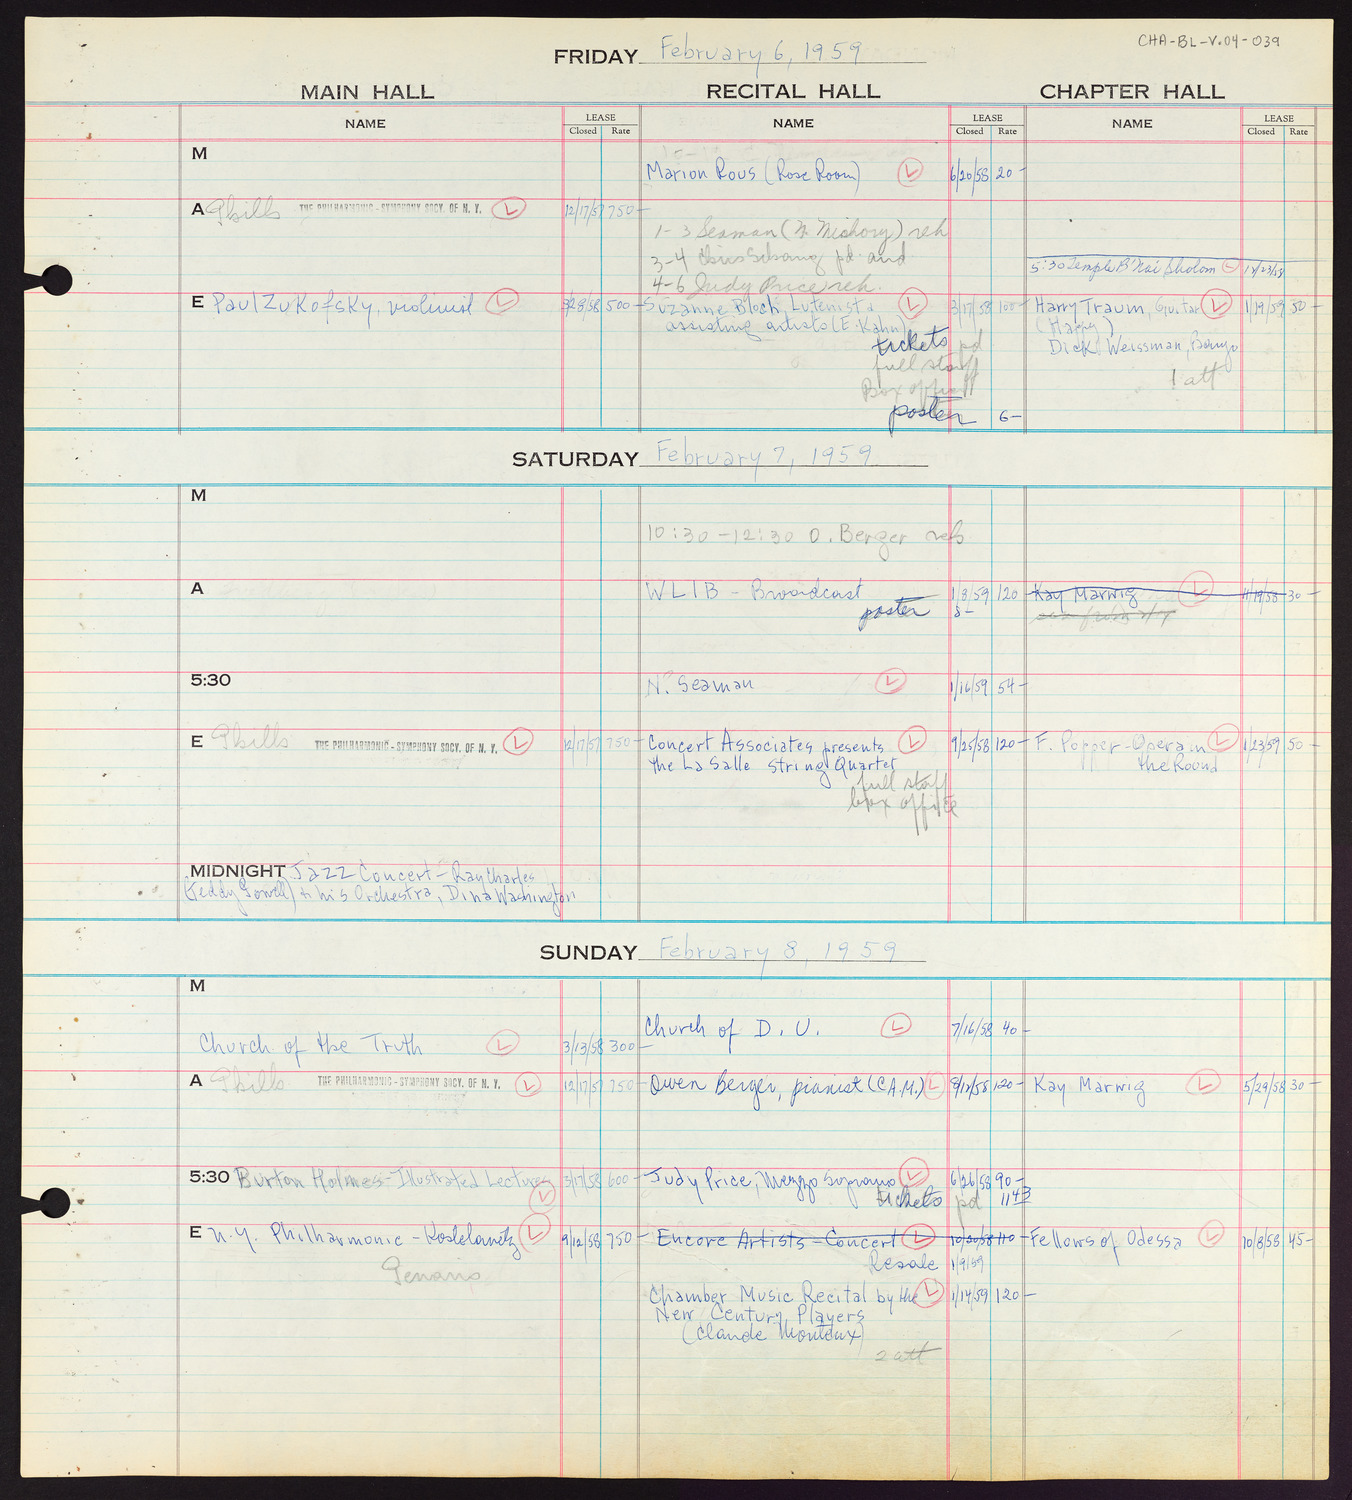 CHA-BL-V.04-039
FRIDAY February 6, 1959
MAIN HALL RECITAL HALL CHAPTER HALL
NAME LEASE Closed Rate NAME LEASE Closed Rate NAME LEASE Closed Rate
M
Marion Rous (Rose Room) L 6/20/58 20-
A Gbills THE PHILHARMONIC-SYMPHONY SOCY. OF N. Y. L 12/17/57 750-
1-3 Seaman reh
3-4 pd and
4-6 Judy Price reh.
5:30 Temple B'Nai Sholom L
E Paul Zukofsky, violinist L 500- Suzanne Bloch, Lutenist & L 3/17/58 100- Harry Traum, Guitar L 1/19/59 50-
assisting artists (E. Kahn) (Happy)
tickets pd Dick Weissman, Banjo
full staff
Box office 1 att
poster 6-
SATURDAY February 7, 1959
M
10:30-12:30 O. Berger reh
A WLIB - Broadcast 1/8/59 120 Kay Marwig L 11/19/58 30-
poster 8-
5:30 N. Seaman L 1/16/59 54-
E Gbills THE PHILHARMONIC-SYMPHONY SOCY. OF N. Y. L 12/17/57 750- Concert Associates presents L 9/25/58 120- F. Popper-Opera in L 1/23/59 50-
the LaSalle String Quartet the Round
full staff
box office
MIDNIGHT Jazz Concert-Ray Charles
(Teddy Powell) & his Orchestra, Dina Washington
SUNDAY February 8, 1959
M
Church of D. U. L 7/16/58 40-
Church of the Truth L 3/13/58 300-
A Gbills THE PHILHARMONIC-SYMPHONY SOCY. OF N. Y. L 12/17/57 750- Owen Berger, pianist (C.A.M.) L 8/12/58 120- Kay Marwig L 5/29/58 30-
5:30 Burton Holmes-Illustrated Lectures L 3/17/58 600- Judy Price, Mezzo Soprano L 6/26/58 90-
tickets pd 11 43
E N.Y. Philharmonic-Kostelanetz L 9/12/58 750- Encore Artists-Concert L 10/30/58 110- Fellows of Odessa L 10/8/58 45-
Resale 1/9/59
Chamber Music Recital by the L 1/14/59 120-
New Century Players
(Claude Monteux)
2 att